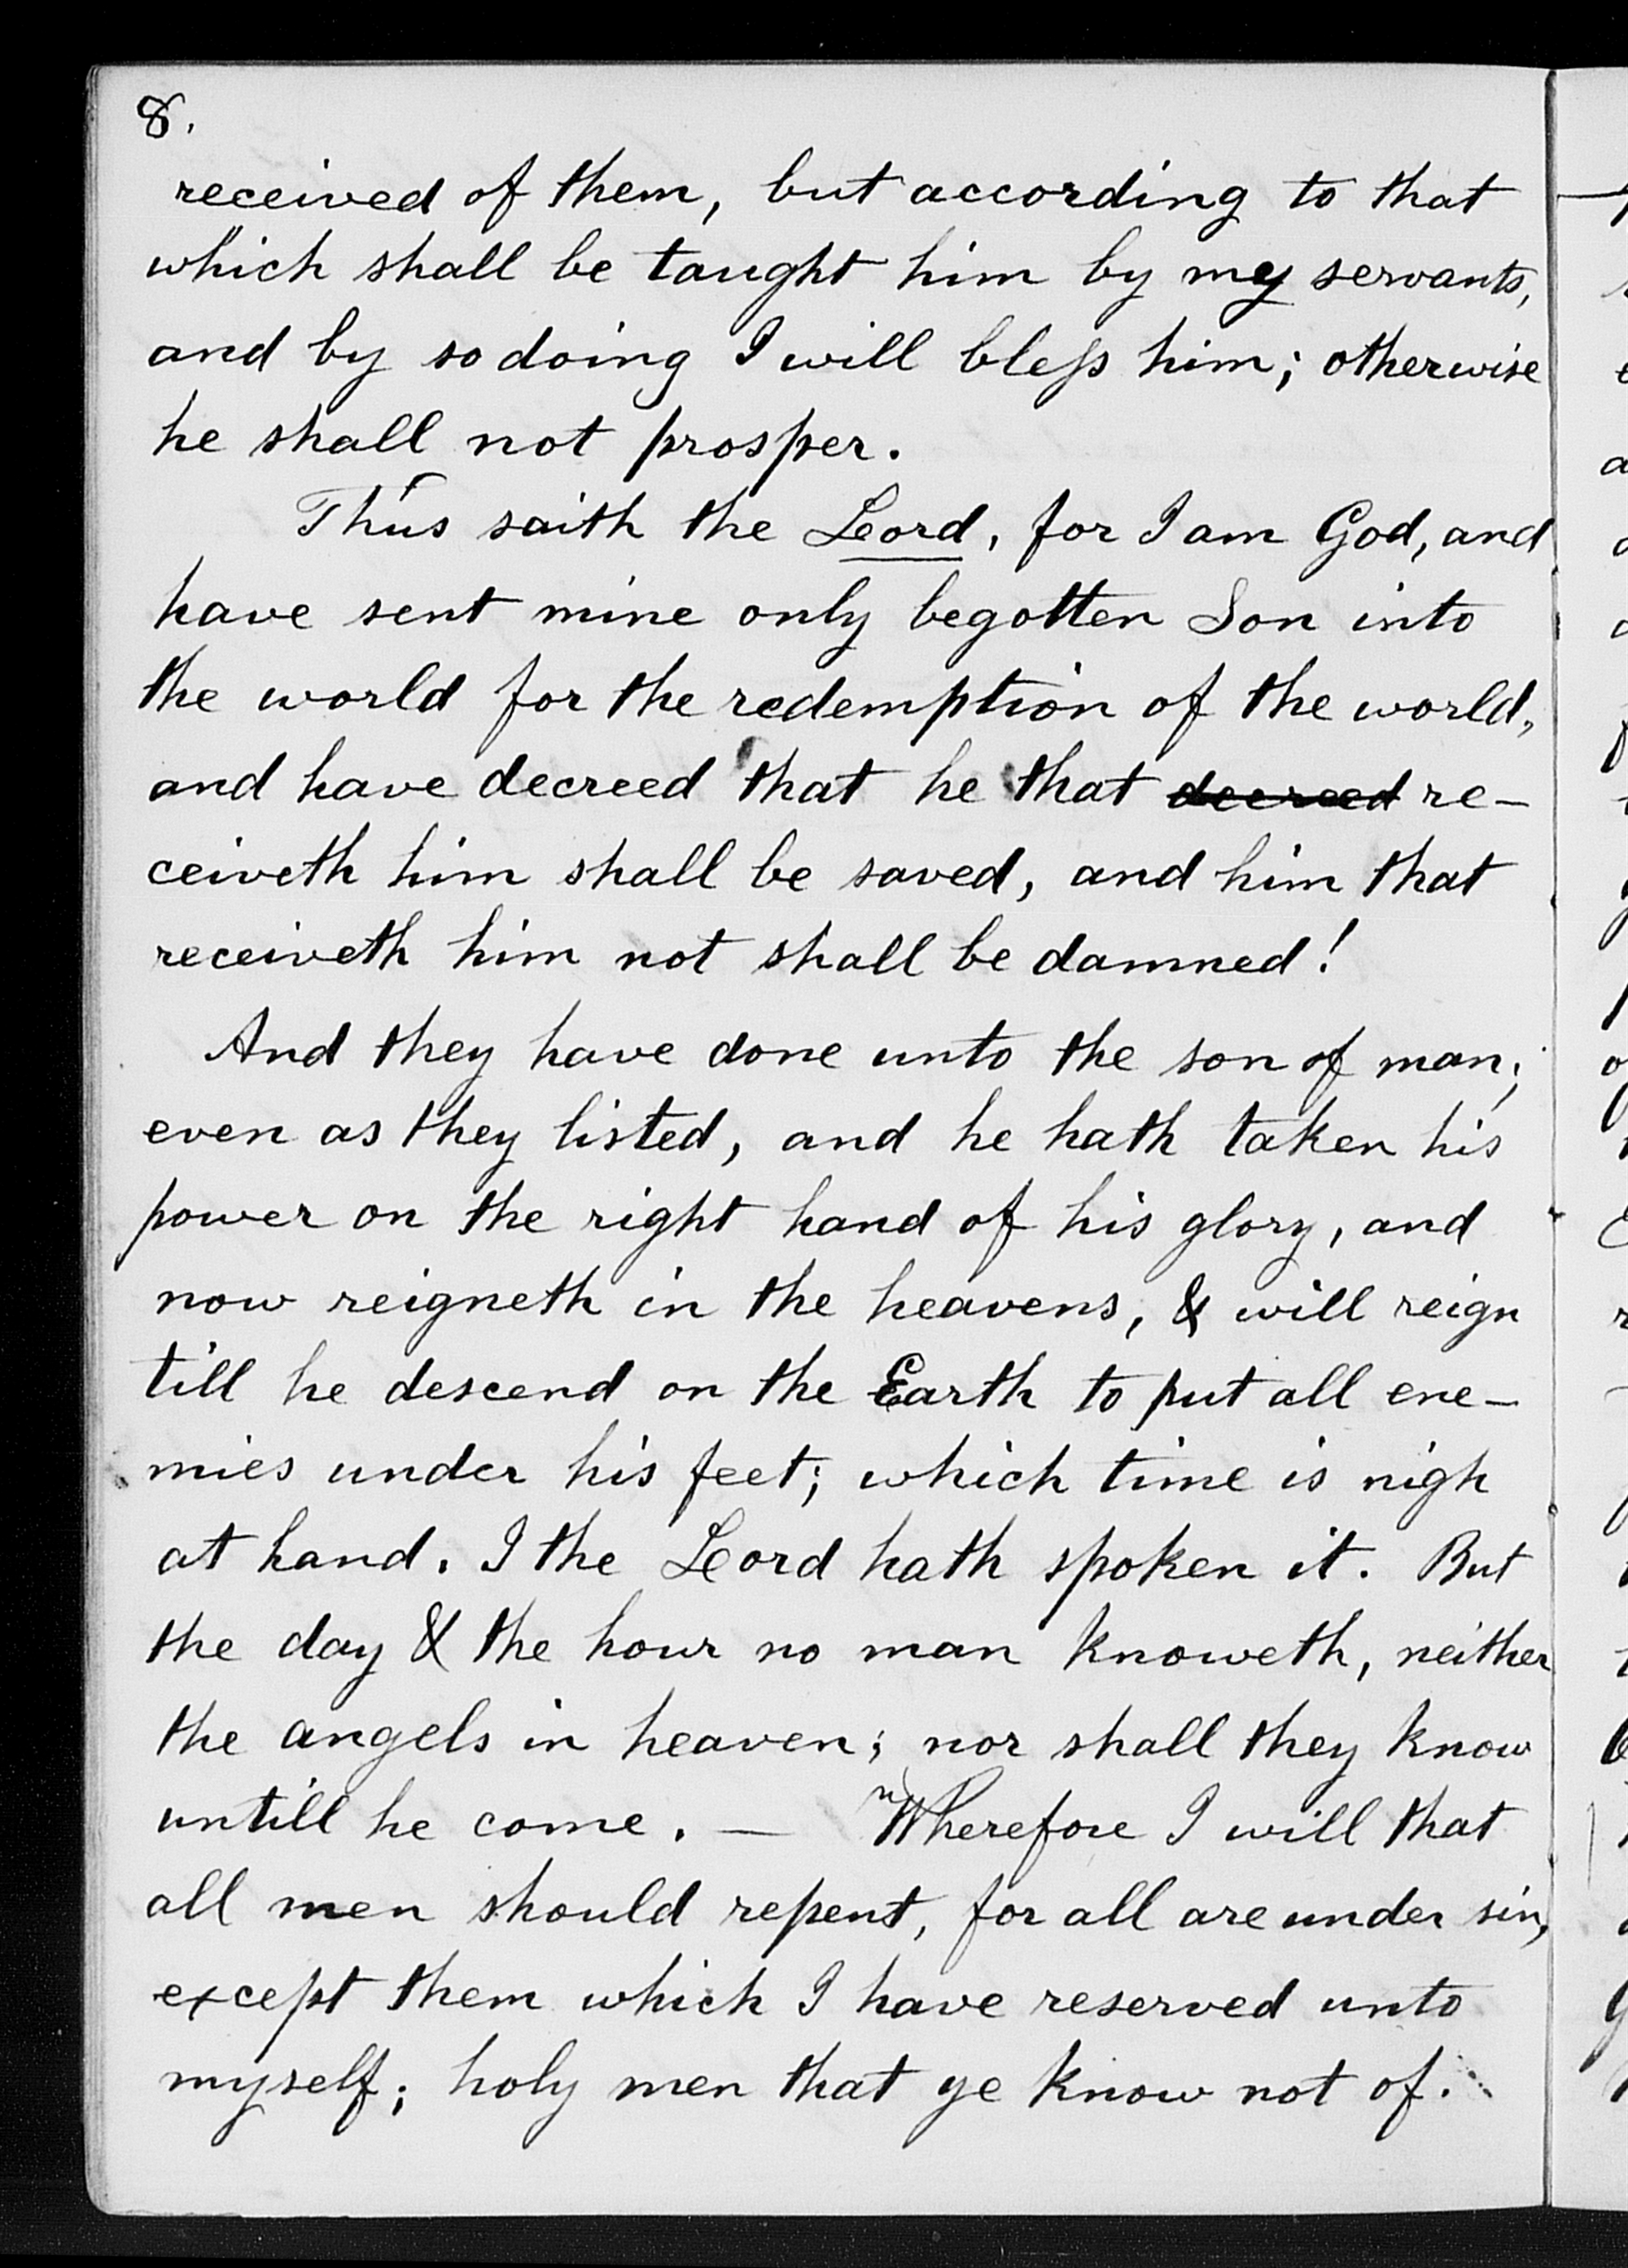 8.
received of them, but according to that
which shall be taught him by my servants,
and by so doing I will bless him; otherwise
he shall not prosper.
Thus saith the Lord, for I am God, and
have sent mine only begotten Son into
the world for the redemption of the world,
and have decreed that he that decreed re-
ceiveth him shall be saved, and him that
receiveth him not shall be damned!
And they have done unto the son of man;
even as they listed, and he hath taken his
power on the right hand of his glory, and
now reigneth in the heavens, & will reign
till he descend on the Earth to put all ene-
mies under his feet; which time is nigh
at hand. I the Lord hath spoken it. But
the day & the hour no man knoweth, neither
the angels in heaven; nor shall they know
untill he come. — Wherefore I will that
all men should repent, for all are under sin,
except them which I have reserved unto
myself; holy men that ye know not of.